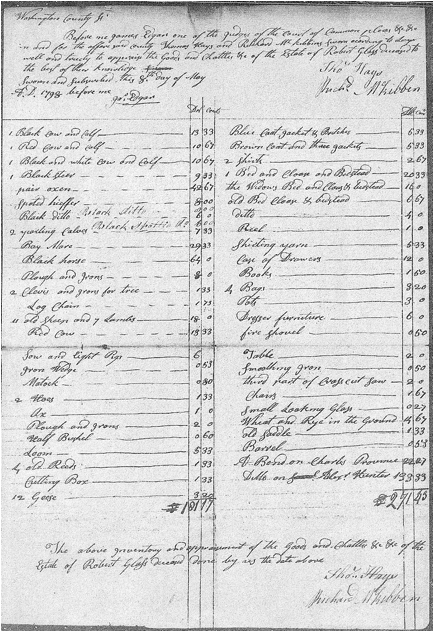 Washington County Ss
Before me James Edgar one of the Judges of the Court of Common pleas &c &c
in and for the afforesaid county Thomas Hays and Richard McKibben sworn according to law
well and truely to appraise the Goods and Chattles &c of the Estate of Robert Glass deceased to
the best of their knowledge
Sworne and Subscribed this 8th day of May
A.D. 1798 before me
Jas. Edgar
Thos Hays
Richd McKibben
Dol Cents
1 Black Cow and Calf 13 33
1 Red Cow and Calf 10 67
1 Black and white Cow and Calf 10 67
1 Black Steer 9 33
1 pair oxen 42 67
1 Spoted heiffer 8 00
1 Black ditto Black ditto 6 0
2 yearling Calves 7 33
Bay Mare 29 33
Black horse 64 0
Plough and Irons 8 0
2 Clevis and irons for tree 1 33
Log Chain 1 73
11 old Sheep and 7 Lambs 18 0
Red Cow 13 33
Sow and Eight Pigs 6
Iron Wedge 0 53
Matock 0 80
2 Hoes 1 33
Ax 1 0
Plough and irons 2 0
Half Bushel 0 60
Loom 5 33
4 old Reeds 1 33
Cutting Box 1 33
12 Geese
Dol Cen
Blue Coat Jacket & Britches 5 33
Brown Coat and three gackets 5 33
2 Shirts 2 67
1 Bed and Cloaes and Bedstead 20 33
the Widows Bed and Cloas & bedsteed 16 0
old Bed Cloas & bedstead 6 67
ditto 4 0
Reel 1 0
Shirting yarn 5 33
Case of Drawers 12 0
Books 1 60
4 Bags 3 20
Pots 3 0
Dresser furniture 6 0
fire shovel 0 50
Table 2 0
Smoothing Iron 0 50
third part of Crosscut Saw 2 0
Chairs 1 67
Small Looking Glass 0 27
Wheat and Rye in the Ground 4 67
old Saddle 1 33
Barrel 0 53
A Bond on Charles
Ditto on Alexr Hunter 13 33
The above Inventory and appraisment of the Goods and Chattles &c &c of the
Estate of Robert Glass deceased done by us the date above
Thos Hays
Richard McKibben